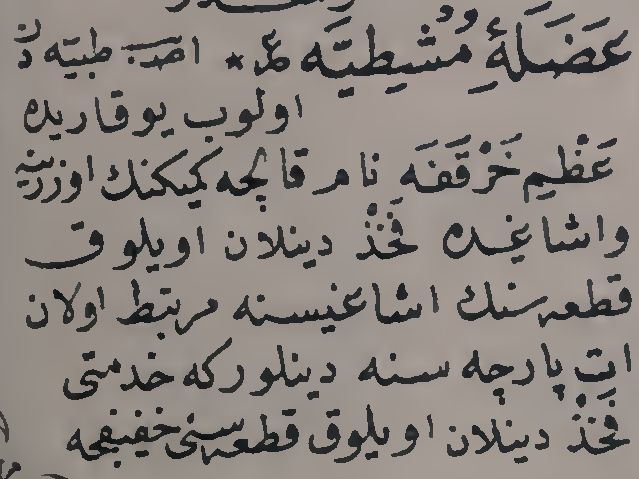 عَضَلَۀِ مُشْطِيَّه ع * اصب طبيه دن
اولوب يوقاريده
عَظْمِ حَرْقَفَه نام قالچه كميكنك اوزرينه
واشاغيده فَخْذْ دينلان اويلوق
قطعه سنك اشاغيسنه مربتط اولان
ات پارچه سنه دينلوركه خدمتى
فَخْذْ دينلان اويلوق قطعه سنى خفيفجه